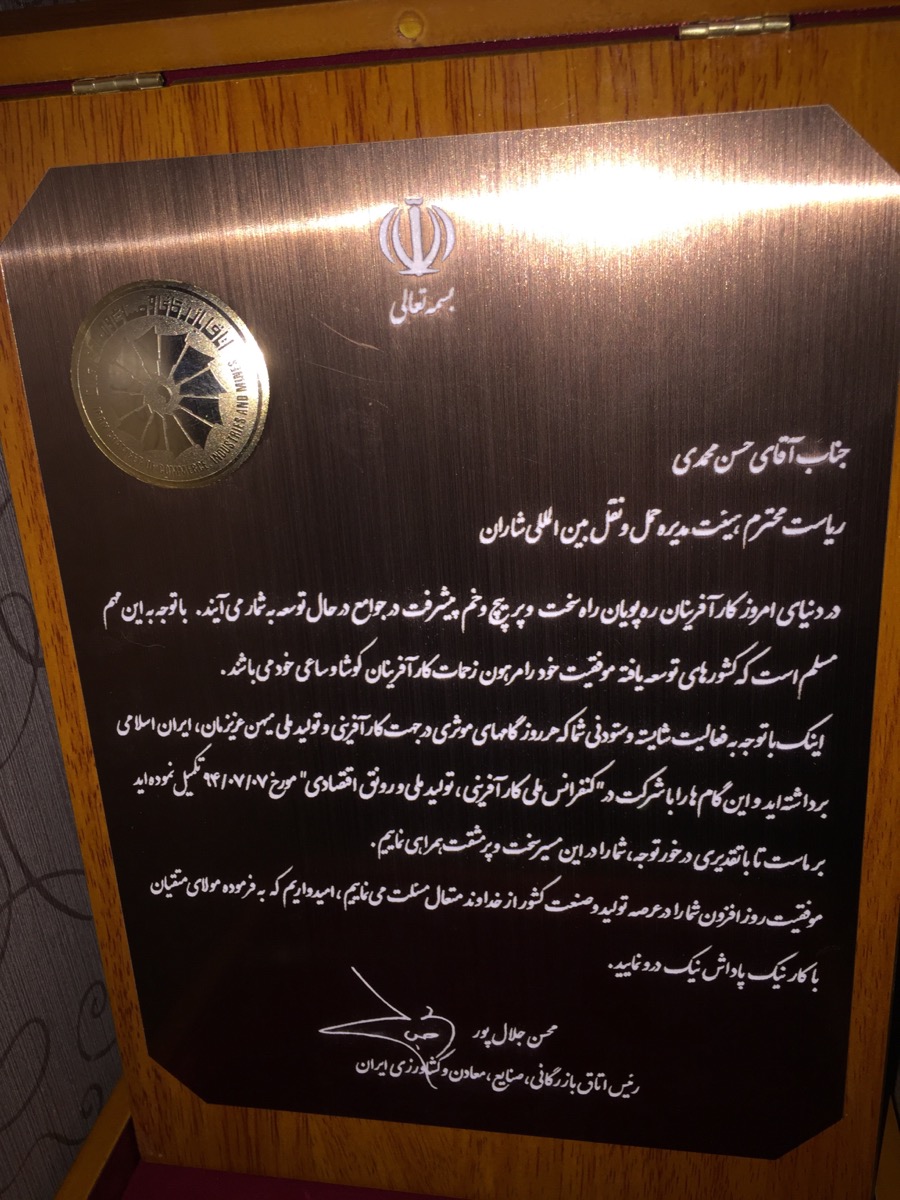 بسمه تعالی
INDUSTRIES AND MINES
جناب آقای حسن محمدی
ریاست محترم هیئت مدیره حمل و نقل بین المللی شاران
در دنیای امروز کارآفرینان ره پویان راه سخت و پر پیچ و خم پیشرفت در جوامع در حال توسعه به شمار می آیند. با توجه به این مهم
مسلم است که کشورهای توسعه یافته موفقیت خود را مرهون زحمات کارآفرینان کوشا و ساعی خود می باشد.
اینک با توجه به فعالیت شایسته و ستودنی شما که هر روز گامهای موثری در جهت کارآفرینی و تولید ملی میهن عزیزمان، ایران اسلامی
برداشته اید و این گام ها را با شرکت در "کنفرانس ملی کارآفرینی، تولید ملی و رونق اقتصادی" مورخ ۹۴/۰۷/۰۷ تکمیل نموده اید
بر ماست تا با تقدیری درخور توجه، شما را در این مسیر سخت و پر مشقت همراهی نماییم.
موفقیت روز افزون شما را در عرصه تولید و صنعت کشور از خداوند متعال مسئلت می نماییم، امیدواریم که به فرموده مولای متقیان
با کار نیک پاداش نیک درو نمایید.
محسن جلال پور
رئیس اتاق بازرگانی، صنایع، معادن و کشاورزی ایران